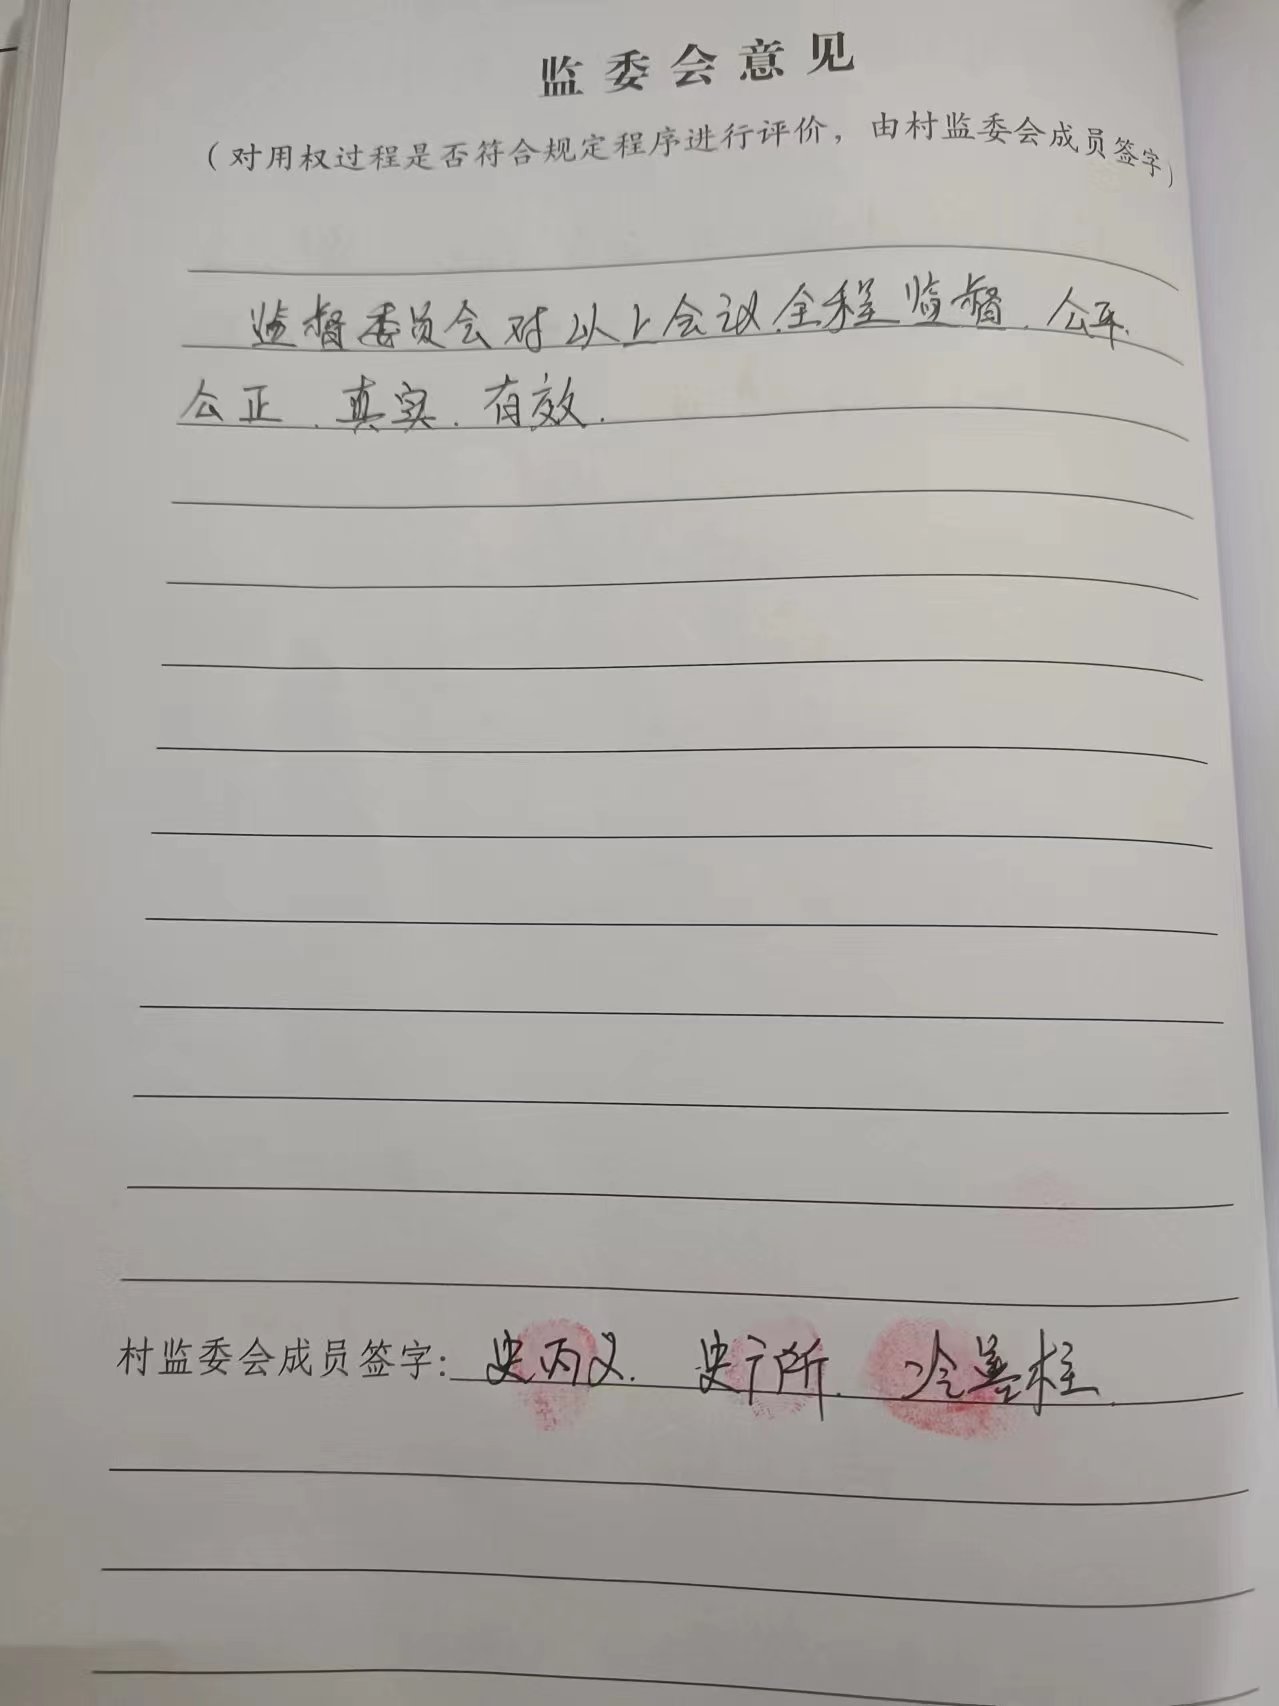 监委会意见
（对用权过程是否符合规定程序进行评价，由村监委会成员签字）
监督委员会对以上会议全程监督.公平.
公正.真实.有效.
村监委会成员签字：史丙义.史广所.冷善柱.